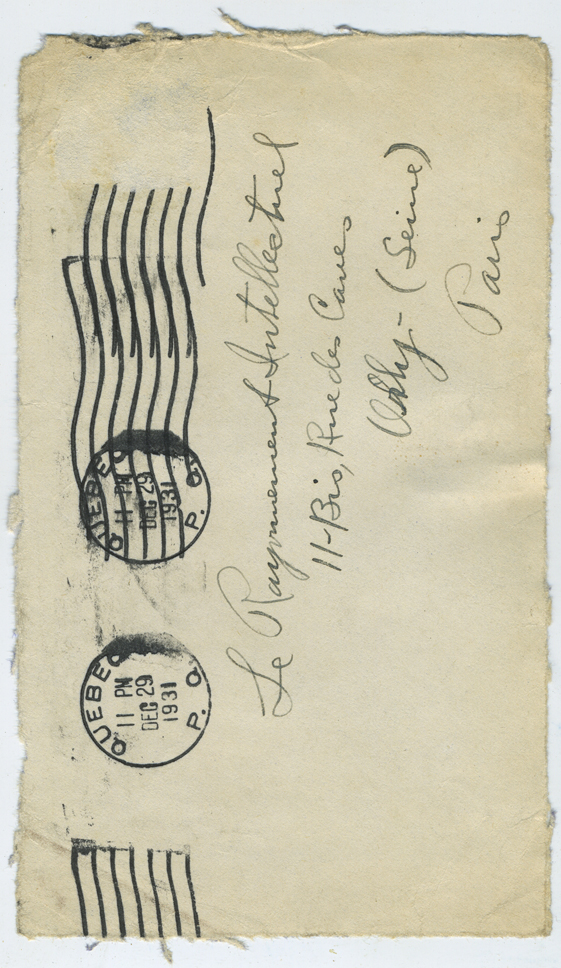 QUEBEC P. Q.
11 PM
DEC 29
1931
QUEBEC P. Q.
11 PM
DEC 29
1931
Le Rayonnement Intellectuel
11-Bis, Rue des Caves
(Seine)
Paris